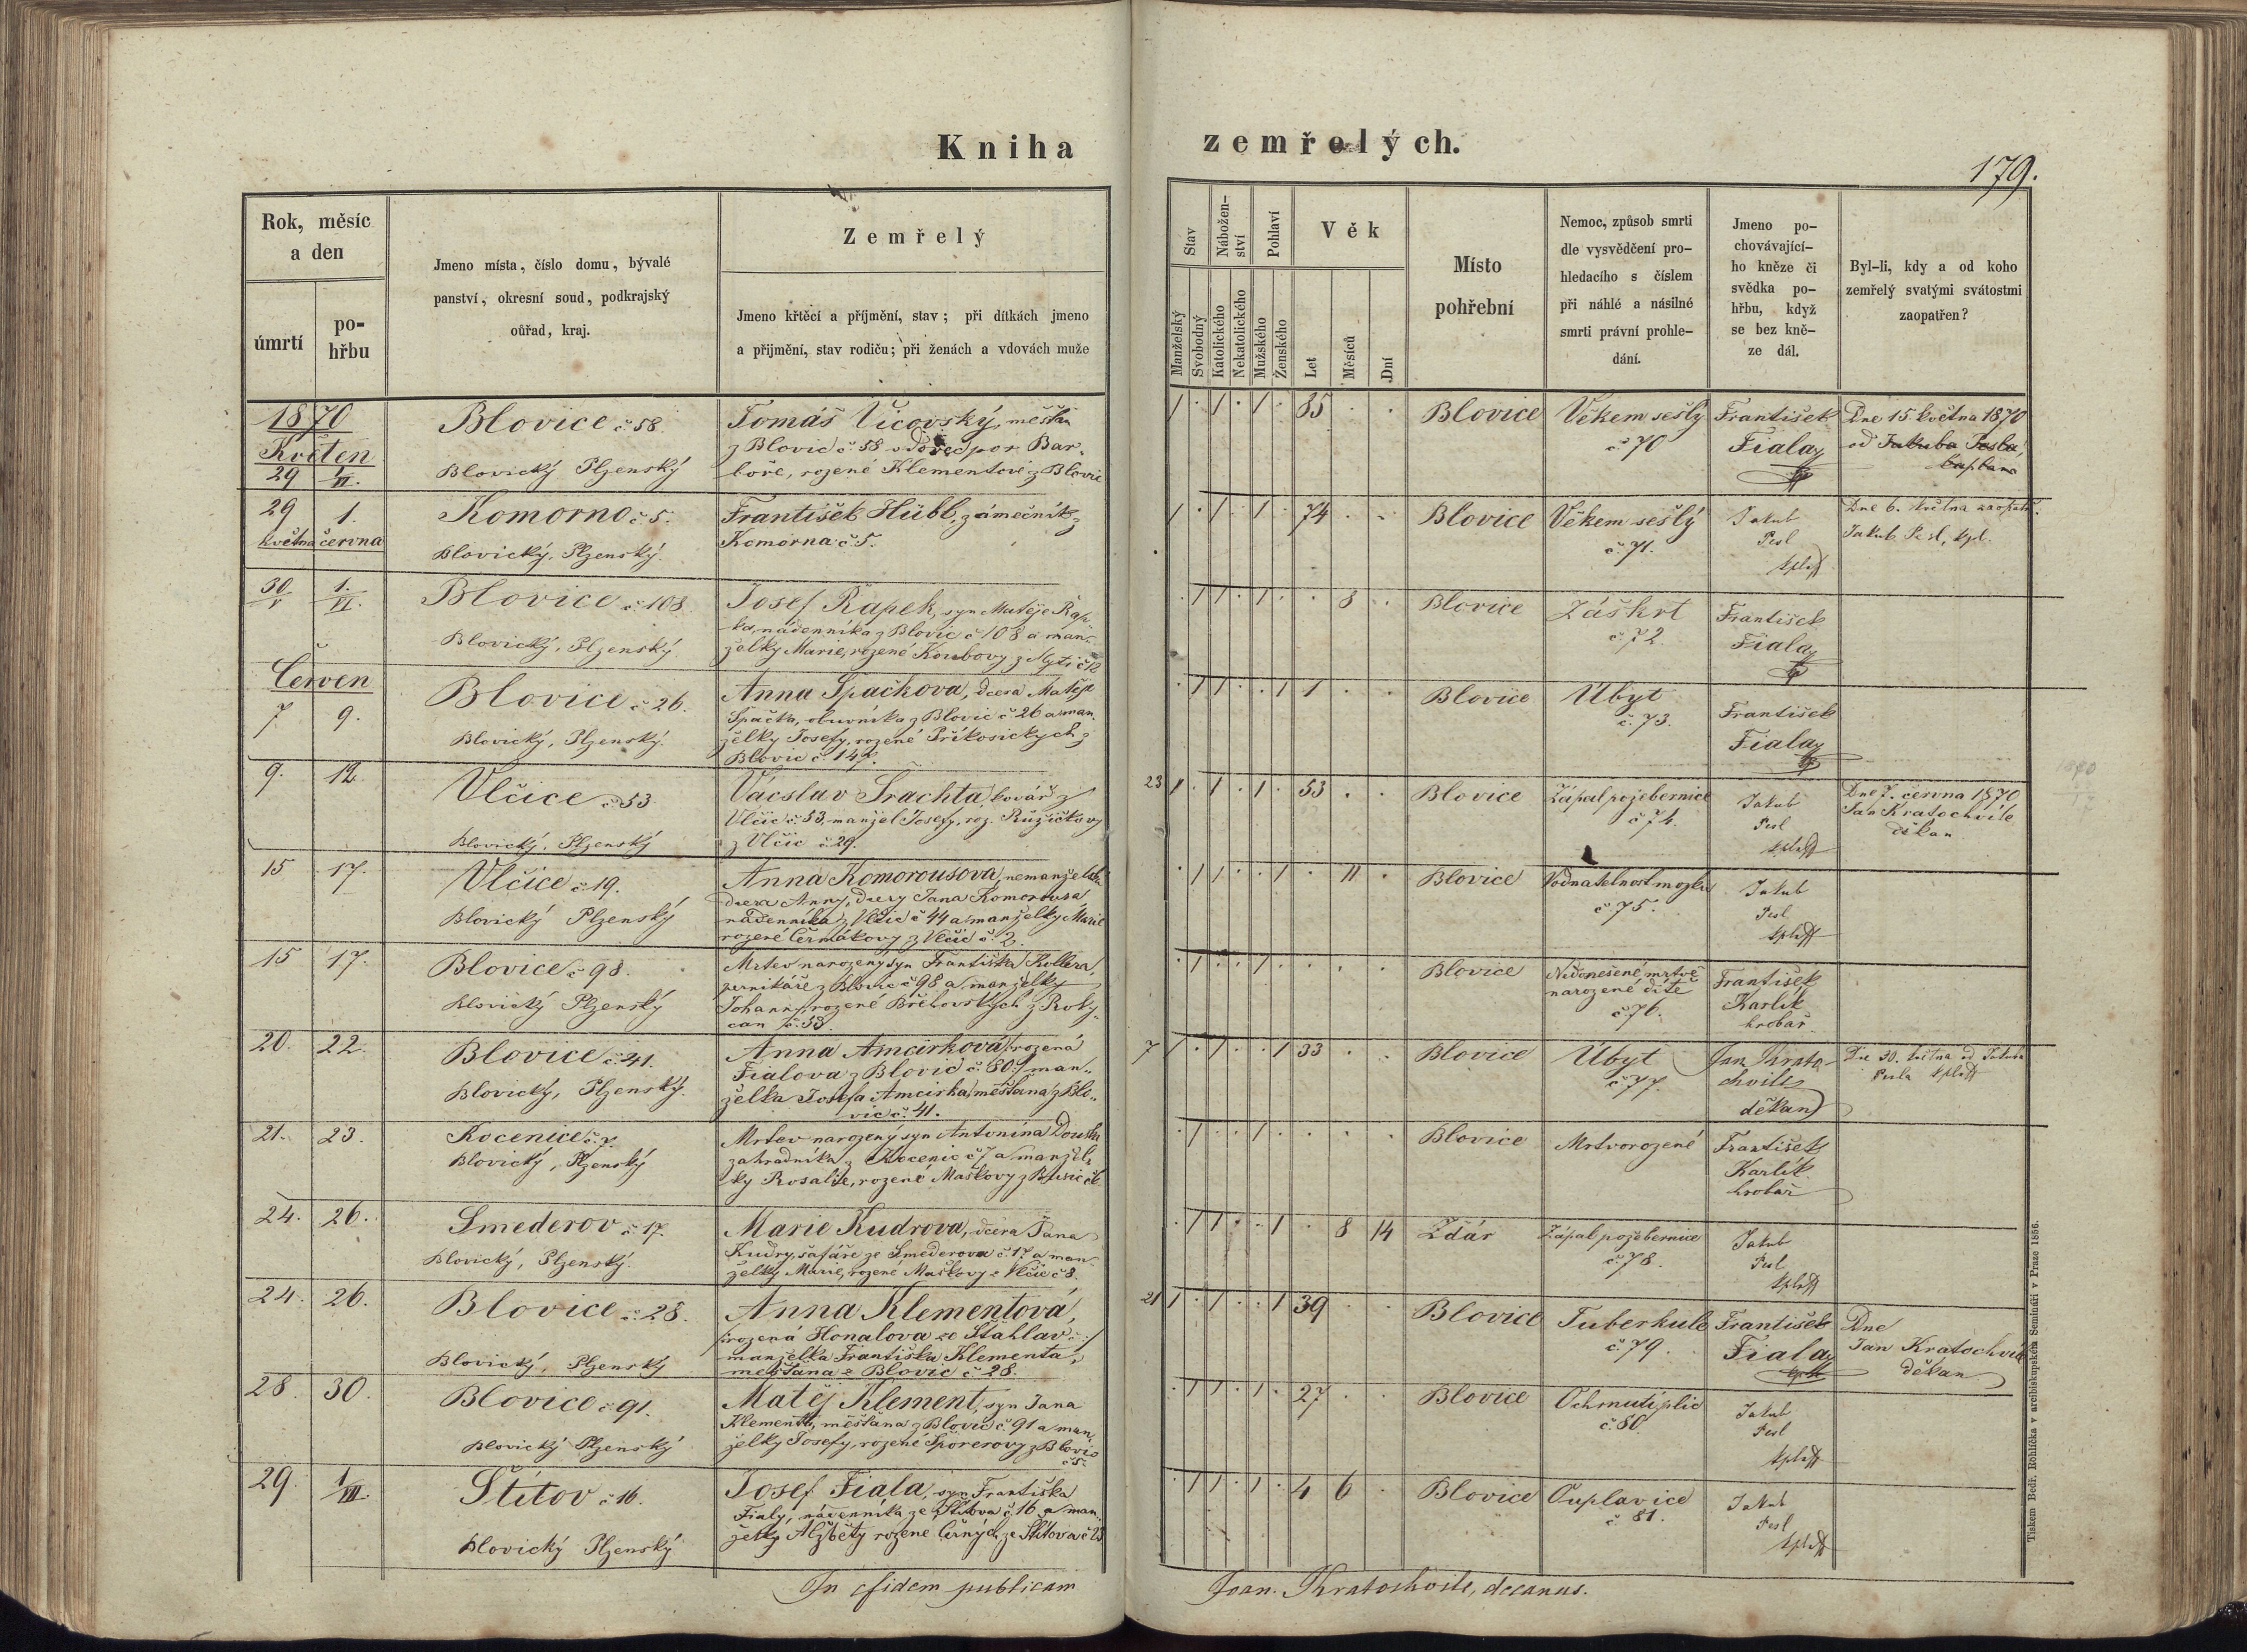 Kniha zemřelých.
179.
Rok, měsíc
a den
úmrtí
po-
hřbu
Jmeno místa, číslo domu, bývalé
panství, okresní soud, podkrajský
ouřad, kraj.
Zemřelý
Jmeno křtěcí a příjmění, stav; při dítkách jmeno
a přijmění, stav rodičů; při ženách a vdovách muže
Stav
Manželský
Svobodný
Nábožen-
ství
Katolického
Nekatolického
Pohlaví
Mužského
Ženského
Věk
Let
Měsíců
Dní
Místo
pohřební
Nemoc, způsob smrti
dle vysvědčení pro-
hledacího s číslem
při náhlé a násilné
smrti právní prohle-
dání.
Jmeno po-
chovávající-
ho kněze či
svědka po-
hřbu, když
se bez kně-
ze dál.
Byl-li, kdy a od koho
zemřelý svatými svátostmi
zaopatřen?
1870
Květen
29
Blovice č 58
Blovický Plzenský
Tomáš Vicovský, měšťan
z Blovic č 58 por. Bar-
boře, rozené Klementové z Blovic
1 . 1 . 1 . 85 . .
Blovice
Věkem sešlý
č 70
František
Fiala
Dne 15. května 1870
od Jakuba Pesla,
kaplana
29 1.
května června
Komorno č 5.
Blovický, Plzenský.
František Hübl, zámečník z
Komorna č 5.
1 . 1 . 1 . 74 . .
Blovice
Věkem sešlý
č. 71.
Jakub
Pesl
kpl
Dne 6. května zaopatř.
Jakub Pesl, kpl.
30/V 1./VI.
Blovice č 108.
Blovický, Plzenský
Josef Řapek, syn Matěje Řap-
ka, nádenníka z Blovic č 108 a man-
želky Marie, rozené Koubovy z
. 1 1 . 1 . . 8 .
Blovice
Záškrt
č. 72.
František
Fiala
Červen
7 9.
Blovice č 26.
Blovický, Plzenský.
Anna Špačkova, dcera Matěje
Špačka, obuvníka z Blovic č 26 a man-
želky Josefy, rozené Příkosických z
Blovic č 147.
. 1 1 . . 1 1 . .
Blovice
Úbyt
č. 73.
František
Fiala
9. 12.
Vlčice č 53
Blovický, Plzenský
Vácslav Šrachta, kovář z
Vlčic č. 53, manžel Josefy, roz. Růžičkovy
z Vlčic č 29.
23 1 . 1 . 1 . 53 . .
Blovice
Zápal pozebernice
č 74.
Jakub
Pesl
kpl
Dne 7. června 1870
Jan Kratochvíle
děkan
15 17.
Vlčice č 19.
Blovický Plzenský
Anna Komorousova, nemanželská
dcera Anny, dcery Jana Komorousa,
nádenníka z Vlčic č 44 a manželky Marie
rozené Čermákovy z Vlčic č. 2.
. 1 1 . . 1 . 11 .
Blovice
Vodnatelnost mozku
č. 75.
Jakub
Pesl
kpl
15 17.
Blovice č 98.
Blovický Plzenský
Mrtev narozený syn Františka Kollera,
perníkáře z Blovic č 98 a manželky
Johanny, rozené Břehovských z Roky-
can č. 33.
. 1 . . 1 . . . .
Blovice
Nedonešené, mrtvě
narozené dítě
č 76.
František
Karlík
hrobař
20. 22.
Blovice č 41.
Blovický, Plzenský.
Anna Amcirková, rozená
Fialova z Blovic č. 80, man-
želka Josefa Amcirka, měšťana z Blo-
vic č. 41.
7 1 . 1 . . 1 33 . .
Blovice
Úbyt
č 77.
Jan Krato-
chvíle
děkan
Dne 30. května od Jakuba
Pesla kpl
21. 23.
Kocenice č. 7.
Blovický, Plzenský
Mrtev narozený syn Antonína
zahradníka z Kocenic č 7 a manžel-
ky Rosalie, rozené Maškovy z
. 1 . . 1 . . . .
Blovice
Mrtvorozené
František
Karlík
hrobař
24. 26.
Smederov č 17.
Blovický, Plzenský.
Marie Kudrova, dcera Jana
Kudry, šafáře ze Smederova č 17 a man-
želky Marie, rozené Maškovy z Vlčic č 8.
. 1 1 . . 1 . 8 14
Ždár
Zápal pozebernice
č. 78.
Jakub
Pesl
kpl
24. 26.
Blovice č. 28.
Blovický, Plzenský
Anna Klementová,
rozená Honalova ze Šťáhlav
manželka Františka Klementa,
měšťana z Blovic č 28.
21 1 . 1 . . 1 39 . .
Blovice
Tuberkule
č. 79.
František
Fiala
Dne
Jan Kratochvíle
děkan
28. 30.
Blovice č 91.
Blovický Plzenský
Matěj Klement, syn Jana
Klementa, měšťana z Blovic č 91 a man-
želky Josefy, rozené Šporerovy z Blovic
č 5.
. 1 1 . 1 . 27 . .
Blovice
Ochrnutí plic
č. 80.
Jakub
Pesl
kpl
29.
Štítov č 16.
Blovický Plzenský
Josef Fiala, syn Františka
Fialy, nádenníka ze Štítova č 16 a man-
želky Alžběty rozené Černých ze Štítova č 23
. 1 1 . 1 . 4 6 .
Blovice
Ouplavice
č 81.
Jakub
Pesl
kpl
In fidem publicam Joan. Kratochvile, decanus.
Tiskem Bedř. Rohlíčka v arcibiskupském Semináři v Praze 1856.